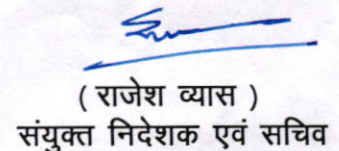 ( राजेश व्यास )
संयुक्त निदेशक एवं सचिव